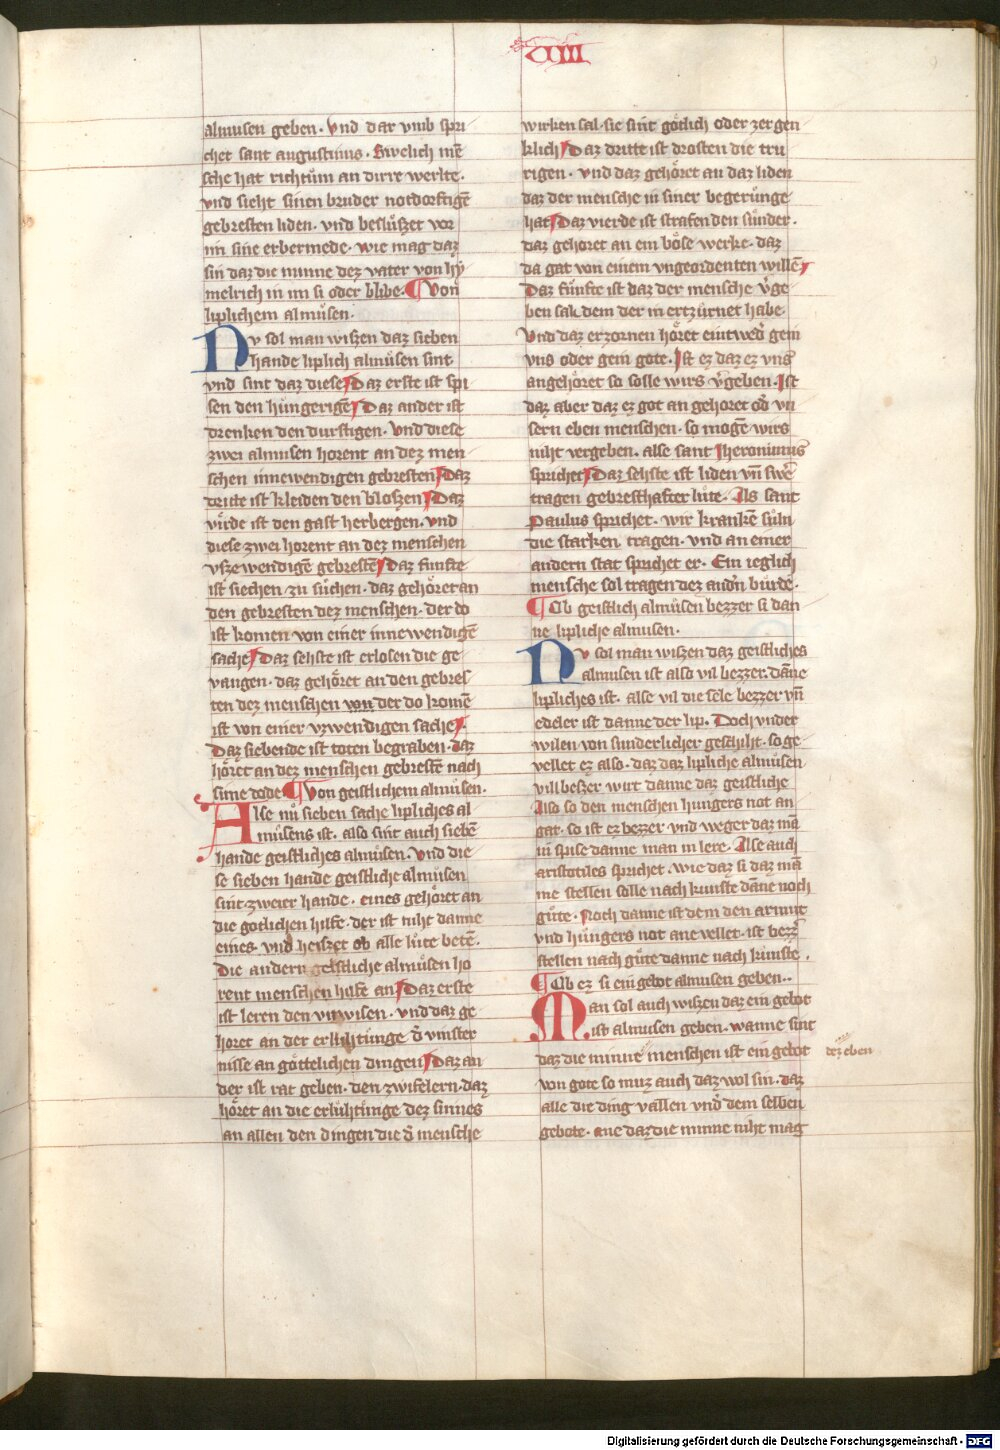 CXIII
almuͤsen geben. Vnd dar vmb spri
chet sant augustinus. Swelich mē
sche hat richtuͦm an dirre werlte.
vnd sieht sinen bruder notdorftigē
gebresten liden. vnd besluͤszet vor
im sine erbermede. wie mag daz
sin daz die minne dez vater von hẏ
melrich in im si oder blibe. ¶ Von
liplichem almuͤsen.
NV sol man wiszen daz sieben
hande liplich almuͤsen sint
vnd sint daz diese Daz erste ist spi
sen den huͤngerigē Daz ander ist
drenken den durstigen. Vnd diese
zwei almusen horent an dez men
schen innewendigen gebresten Daz
dritte ist kleiden den bloszen Daz
virde ist den gast herbergen. vnd
diese zwei horent an dez menschen
vszewendigē gebrestē Daz funfte
ist siechen zu suͤchen. daz gehoͤret an
den gebresten dez menschen. der do
ist komen von einer innewendigē
sache Daz sehste ist erlosen die ge
vangen. daz gehoͤret an den gebres
ten dez menschen von der do komē
ist von einer vzwendigen sache
Daz siebende ist toten begraben. daz
hoͤret an dez menschen gebrestē nach
sime tode ¶ Von geistlichem almuͤsen.
Alse nuͦ sieben sache lipliches al
muͤsens ist. also sint auch siebē
hande geistliches almuͤsen. Vnd die
se sieben hande geistliche almuͤsen
sint zweier hande. eines gehoͤret an
die gotlichen hilfe. der ist niht danne
eines. vnd heiszet ob alle luͤte betē.
Die andern geistliche almuͤsen ho
rent menschen hilfe an Daz erste
ist leren den vnwisen. vnd daz ge
horet an der erluhtuͤnge d̄ vinster
nisse an goͤttelichen dingen Daz an
der ist rat geben. den zwifelern. daz
hoͤret an die erluͤhtuͤnge dez sinnes
an allen den dingen die d̄ mensche
wirken sal. sie sint goͤtlich oder zergen
klich Daz dritte ist drosten die tru
rigen. vnd daz gehoͤret an daz liden
daz der mensche in siner begeruͤnge
hat Daz vierde ist strafen den suͤnder.
daz gehoret an ein boͤse werke. daz
da gat von einem vngeordenten willē
Daz fuͤnfte ist daz der mensche v̄ge
ben sal. dem der in erzuͤrnet habe.
Vnd daz erzornen hoͤret eintwed̄ gein
vns oder gein gote. Ist ez daz ez vns
angehoͤret so solle wirs v̄geben. Ist
daz aber daz ez got an gehoret od̄ vn
sern eben menschen. so mogē wirs
niht vergeben. alse sant Jheronimus
sprichet Daz sehste ist liden vn̄ swē
tragen gebresthafter luͤte. Als sant
Paulus sprichet. wir krankē suͤln
die starken tragen. vnd an einer
andern stat sprichet er. Ein ieglich
mensche sol tragen dez and̄n buͤrde.
¶ Ob geistlich almuͤsen bezzer si dan
ne lipliche almusen.
NV sol man wiszen daz geistliches
almuͤsen ist also vil bezzer. dāne
lipliches ist. alse vil die sele bezzer vn̄
edeler ist danne der lip. Doch vnder
wilen von sunderlicher geschiht. so ge
vellet ez also. daz daz lipliche almuͤsen
vil beszer wirt danne daz geistliche
Also so den menschen hungers not an
gat. so ist ez bezzer vnd weger daz mā
in spise danne man in lere. Alse auch
aristotiles sprichet. wie daz si daz mā
me stellen solle nach kunste dāne noch
guͤte. Noch danne ist dem den armut
vnd huͤngers not ane vellet. ist bezz̄
stellen nach guͤte danne nach kuͤnste.
¶ Ob ez si ein gebot almusen geben..
Man sol auch wiszen daz ein gebot
ist almusen geben. wanne sint
daz die minne menschen ist ein gebot dez eben
von gote so muz auch daz wol sin. daz
alle die ding vallen vnd̄ dem selben
gebote. ane daz die minne niht mag
Digitalisierung gefördert durch die Deutsche Forschungsgemeinschaft - DFG